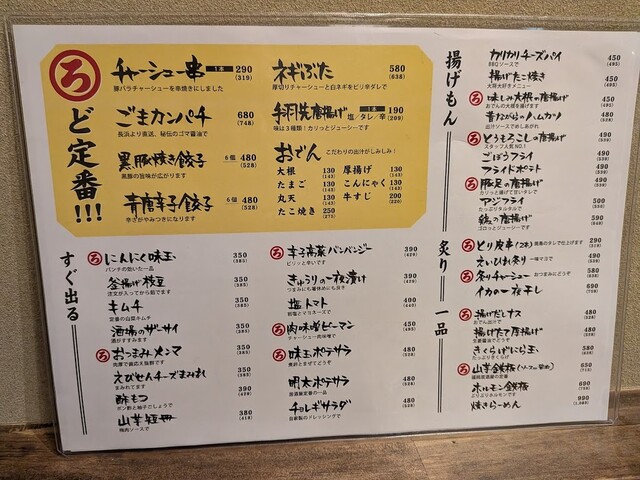 ろ ど定番!!!
チャーシュー串 1本 290 (319)
豚バラチャーシューを串焼きにしました
ごまカンパチ 680 (748)
長浜より直送、秘伝のゴマ醤油で
黒豚焼き餃子 6個 480 (528)
黒豚の旨味が広がります
青唐辛子餃子 6個 480 (528)
辛さがやみつきになります
ネギぶた 580 (638)
厚切りチャーシューと白ネギをピリ辛ダレで
手羽先唐揚げ 1本 塩/タレ/辛 190 (209)
味は3種類!カリっとジューシーです
おでん こだわりの出汁がしみしみ!
大根 130 (143) 厚揚げ 130 (143)
たまご 130 (143) こんにゃく 130 (143)
丸天 130 (143) 牛すじ 200 (220)
たこ焼き 250 (275)
すぐ出る
ろ にんにく味玉 350 (385)
パンチの効いた一品
釜揚げ枝豆 350 (385)
注文が入ってから茹でます
キムチ 350 (385)
定番の白菜キムチ
酒場のザーサイ 350 (385)
酒がすすみます
ろ おつまみメンマ 350 (385)
肉厚で歯応え抜群です
えびせんチーズまみれ 350 (385)
まみれてます
酢もつ 390
ポン酢と柚子でしょうで
山芋短冊 380
梅肉ソースで
ろ 辛子高菜バンバンジー 390 (429)
ピリッと辛いです
きゅうりの一夜漬け 390
つまみにも箸休めにも良き
塩トマト 400 (440)
岩塩とマリネーズで
ろ 肉味噌ピーマン 480
チャーシュー肉味噌で
ろ 味玉ポテサラ 480
煮卵をまぜてどうぞ
明太ポテサラ 480
居酒屋定番の一品
チョレギサラダ 480
自家製のドレッシングで
揚げもん
カリカリチーズパイ 450
BBQソースで
揚げたこ焼き 450
大将大好きメニュー
ろ 味しみ大根の唐揚げ 450
おでんの大根を揚げます
昔ながらのハムカツ 480
出汁ソースでめしあがれ
ろ とうもろこしの唐揚げ 490
スタッフ人気NO.1
ごぼうフライ 490
フライドポテト 490
ろ 豚足の唐揚げ 490
カリッと揚げて甘いタレで
アジフライ 500
たっぷりタルタルで
鶏の唐揚げ 590
ゴロっとジューシーです
炙り
ろ とり皮串(2本) 290
えいひれ炙り 一味マヨで 490
ろ 炙りチャーシュー おつまみにどうぞ 580
イカの一夜干し 690
一品
ろ 揚げだしナス 480
おでん出汁で
揚げたて厚揚げ 480
生姜醤油でどうぞ
きくらげにら玉 580
たっぷりきくらげ
ろ 山芋鉄板 650
福岡居酒屋の定番
ホルモン鉄板 690
ぷりぷりホルモンです
焼きらーめん 990